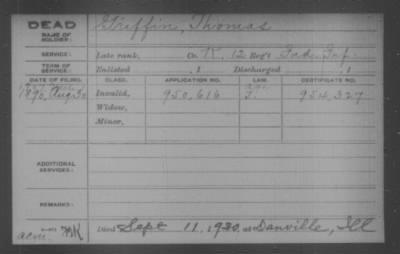 DEAD
NAME OF SOLDIER: Griffin, Thomas
SERVICE: Late rank, Co. K, 12 Reg't Inf.
TERM OF SERVICE: Enlisted , 1 Discharged , 1
DATE OF FILING. CLASS. APPLICATION NO. LAW. CERTIFICATE NO.
1890, Aug 30 Invalid, 950,616 954,327
Widow,
Minor,
ADDITIONAL SERVICES:
REMARKS:
Died Sept 11, 1920 at Danville, Ill